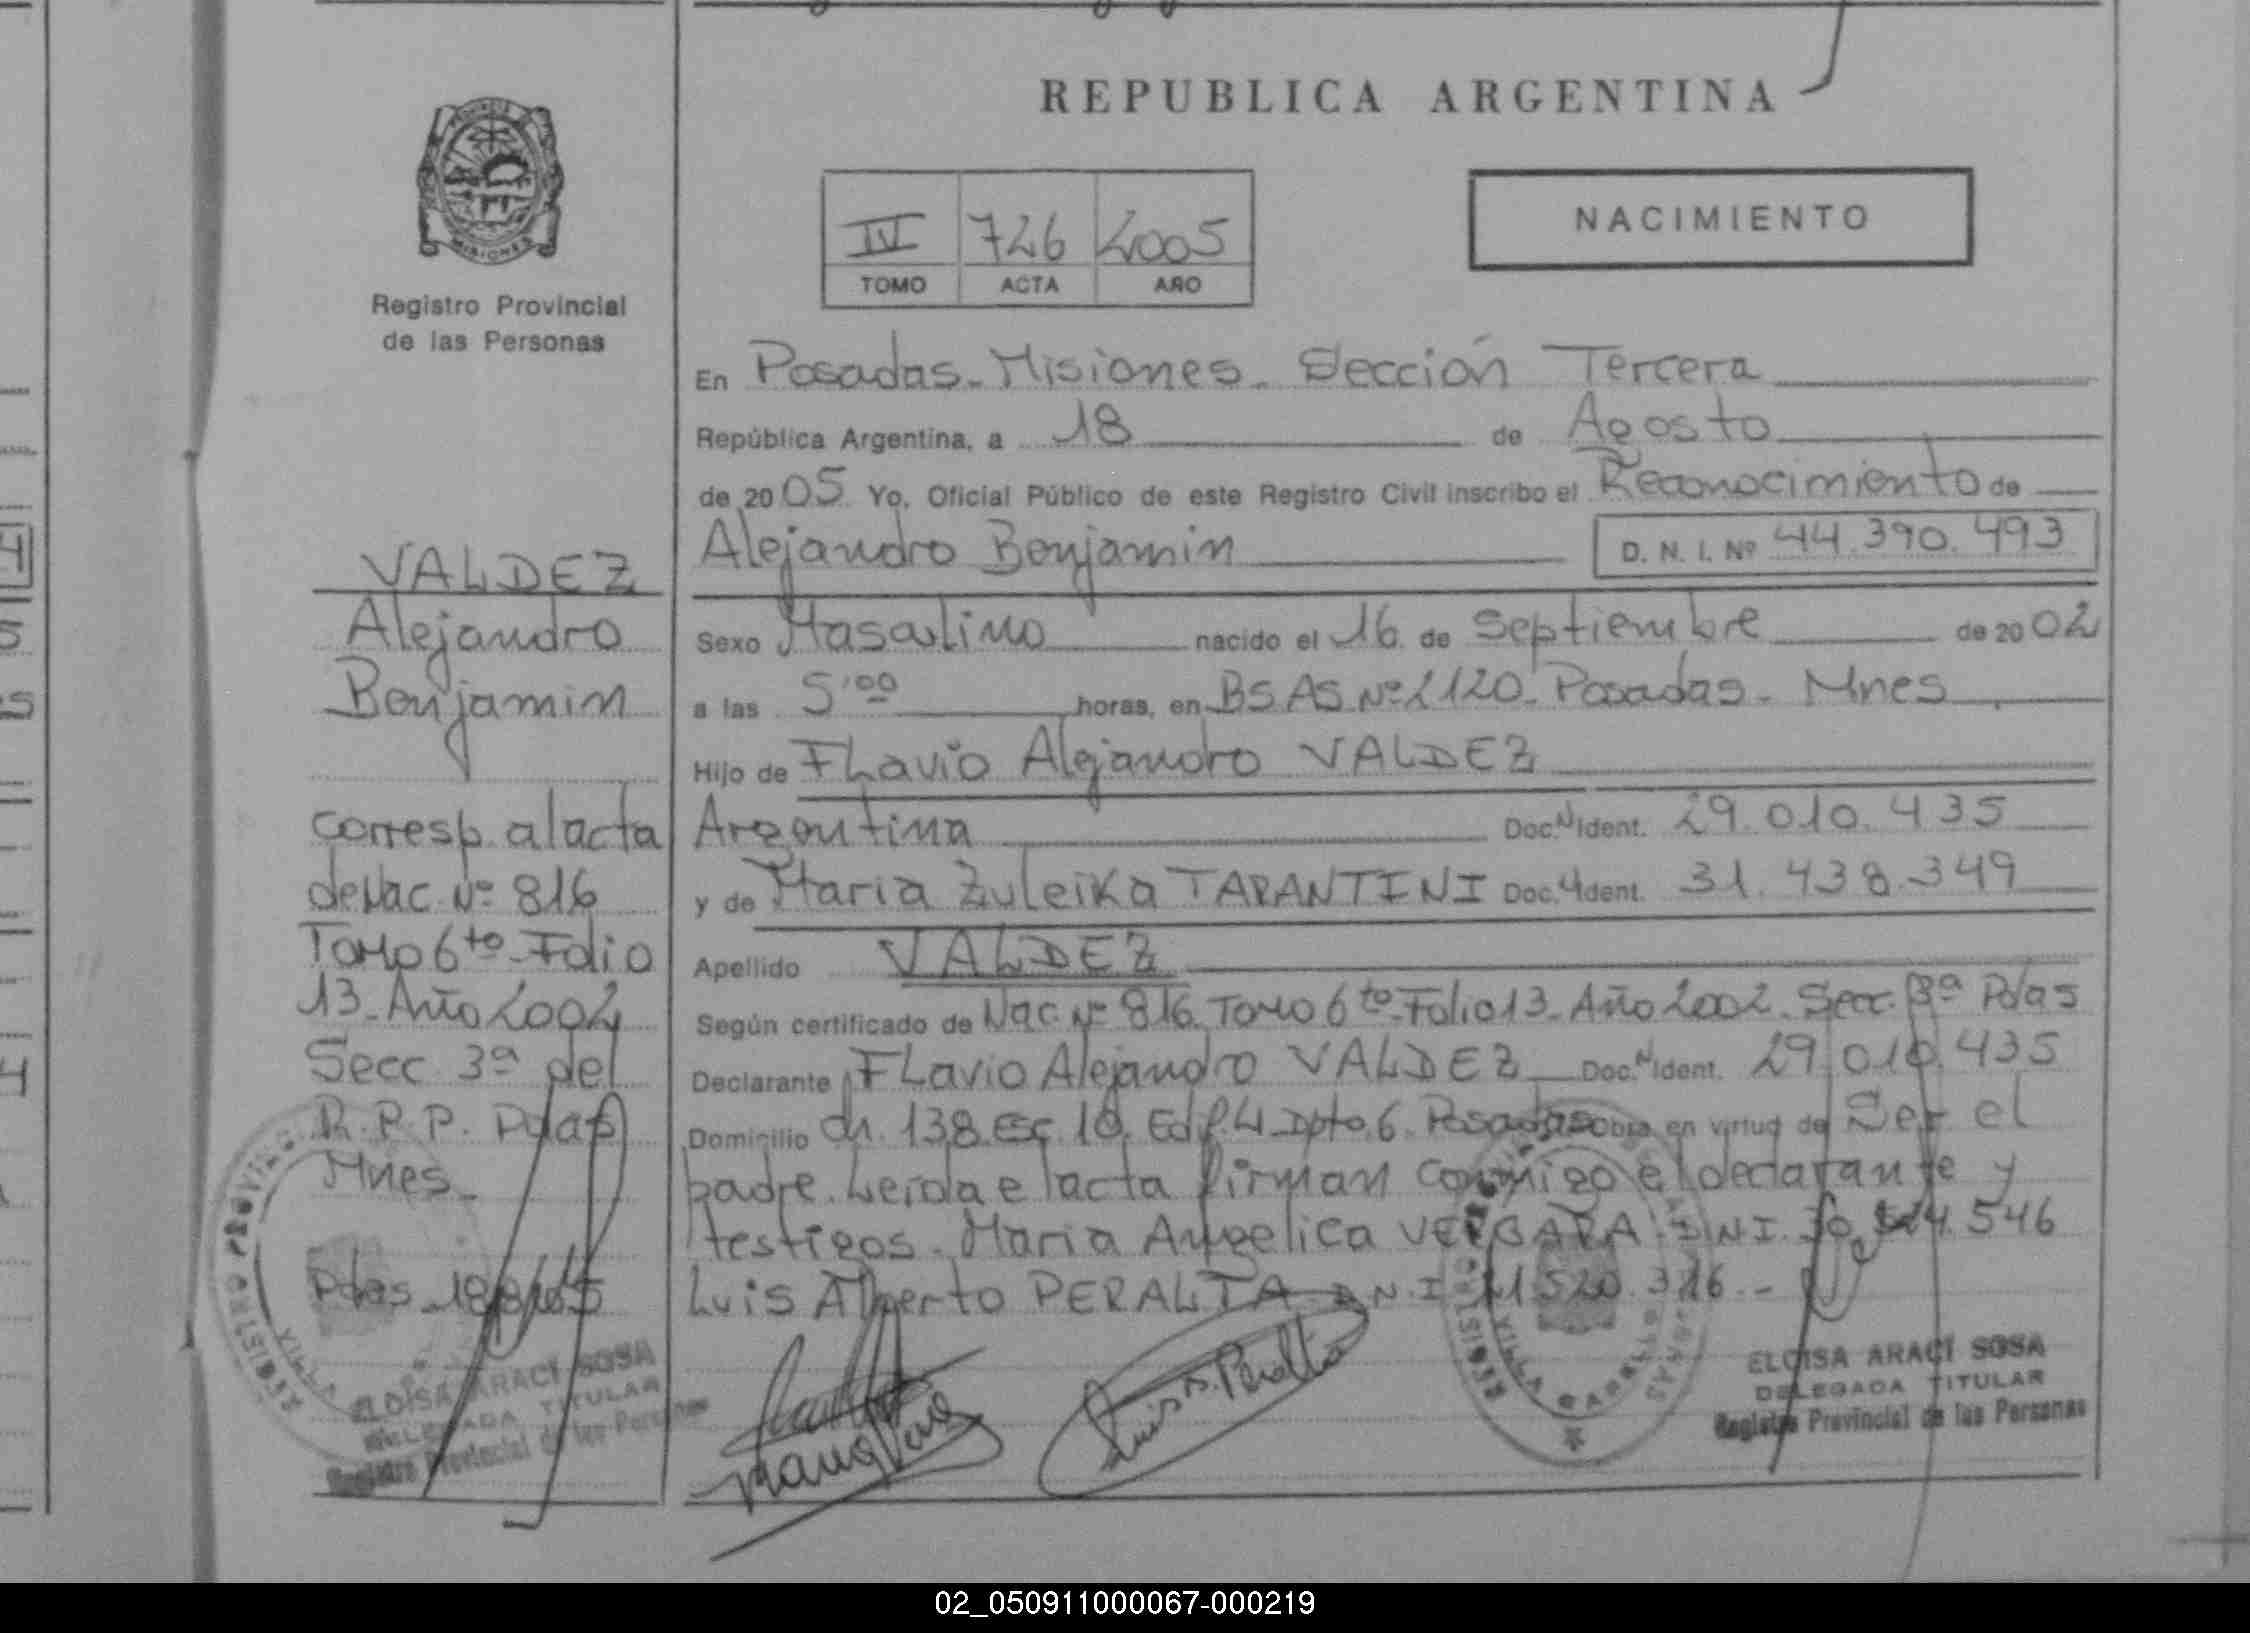 REPUBLICA ARGENTINA
MISIONES
Registro Provincial
de las Personas
IV 726 2005
TOMO ACTA AÑO
NACIMIENTO
En Posadas - Misiones - Sección Tercera
República Argentina, a 18 de Agosto
de 2005 Yo, Oficial Público de este Registro Civil inscribo el Reconocimiento de
Alejandro Benjamin D. N. I. Nº 44.390.493
Sexo Masculino nacido el 16 de Septiembre de 2002
a las 5'00 horas, en BS AS Nº 2120 - Posadas - Mnes
Hijo de Flavio Alejandro VALDEZ
Argentina Doc. N Ident. 29.010.435
y de Maria Zuleika TARANTINI Doc. Ident. 31.438.349
Apellido VALDEZ
Según certificado de Nac. Nº 816 Tomo 6to - Folio 13 - Año 2002 - Secc. 3ª Pdas
Declarante Flavio Alejandro VALDEZ Doc. N Ident. 29.010.435
Domicilio Ch. 138 Esc 10. Edif 4 Dpto. 6. Posadas obra en virtud de Ser el
padre. Leida el acta firman conmigo el declarante y
testigos. Maria Angelica VERGARA D.N.I. 546
Luis Alberto PERALTA D.N.I 316 -
Luis A. Peralta
ELOISA ARACI SOSA
DELEGADA TITULAR
Registro Provincial de las Personas
VALDEZ
Alejandro
Benjamin
Corresp. al acta
de Nac. Nº 816
Tomo 6to - Folio
13 - Año 2002
Secc. 3ª del
R.P.P. Pdas
Mnes -
Pdas - 18/8/05
ELOISA ARACI SOSA
DELEGADA TITULAR
Registro Provincial de las Personas
02_050911000067-000219